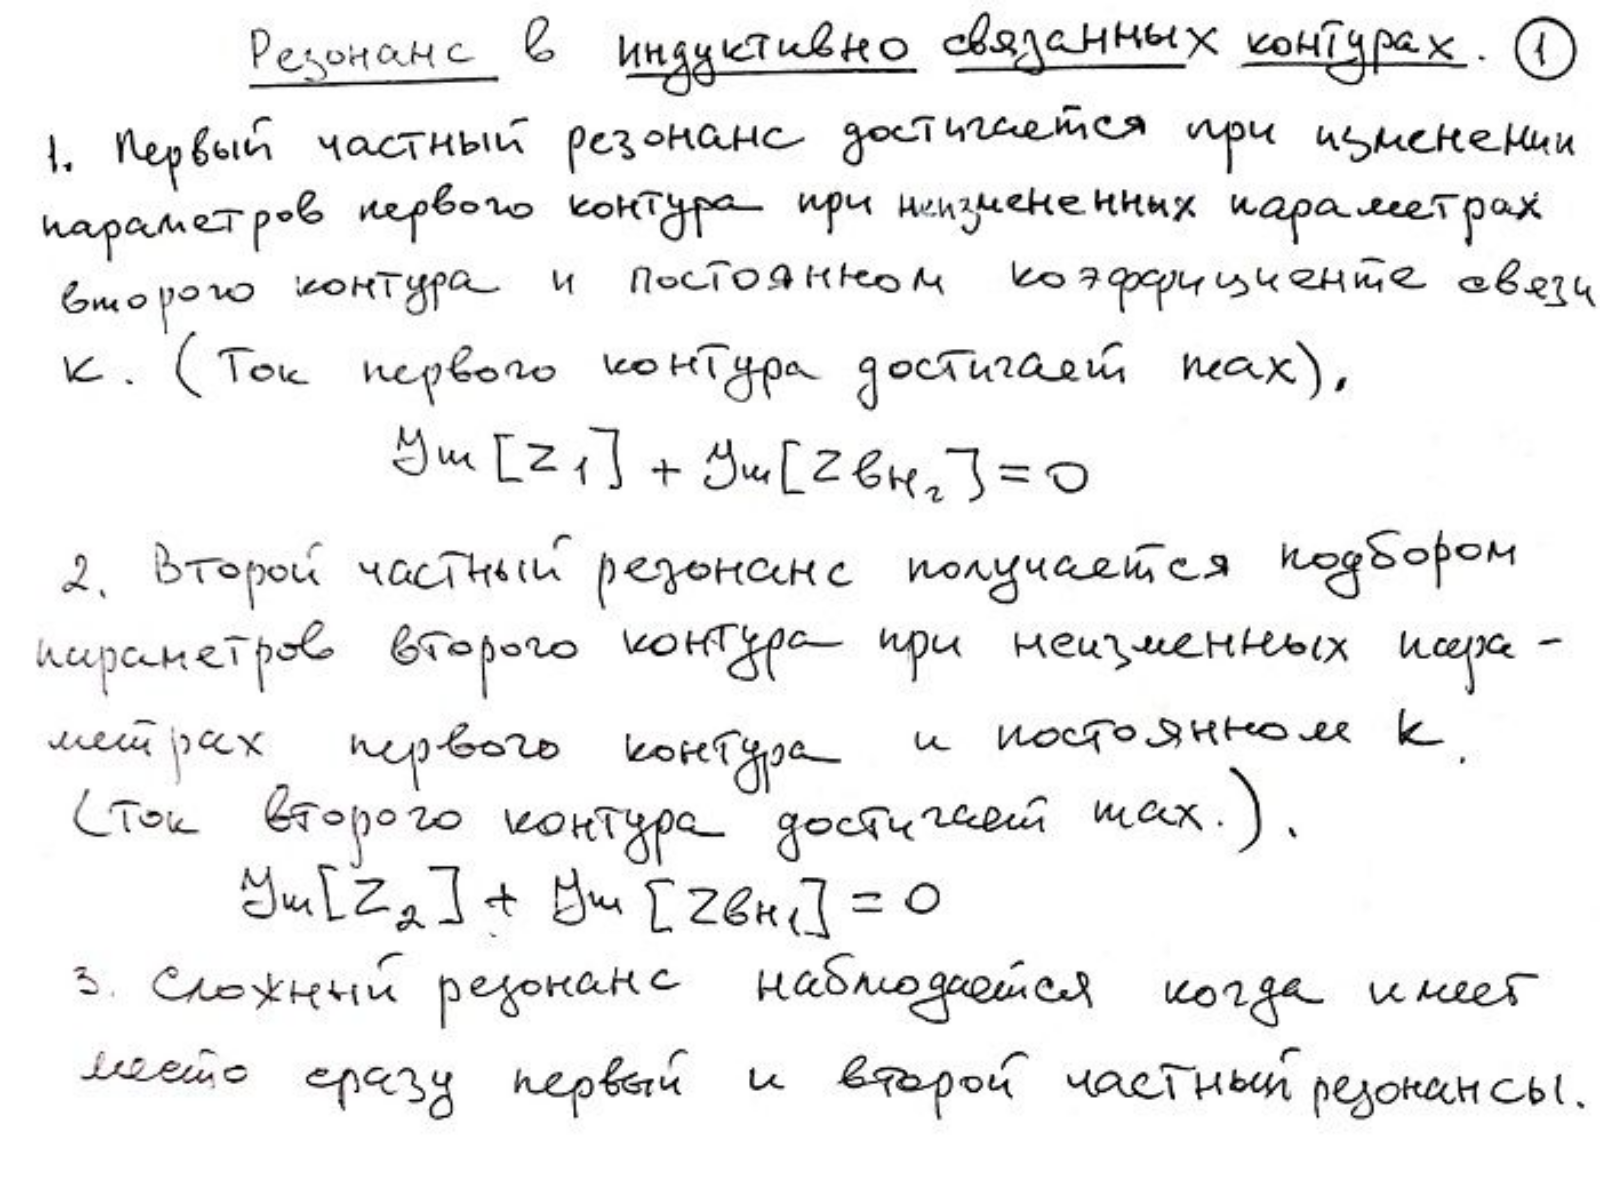 Резонанс в индуктивно связанных контурах. 1
1. Первый частный резонанс достигается при изменении
параметров первого контура при неизмененных параметрах
второго контура и постоянном коэффициенте связи
к. (Ток первого контура достигает max).
Im [Z1] + Im [Zвн2] = 0
2. Второй частный резонанс получается подбором
параметров второго контура при неизменных пара-
метрах первого контура и постоянном к.
(Ток второго контура достигает max.).
Im [Z2] + Im [Zвн1] = 0
3. Сложный резонанс наблюдается когда имеет
место сразу первый и второй частный резонансы.